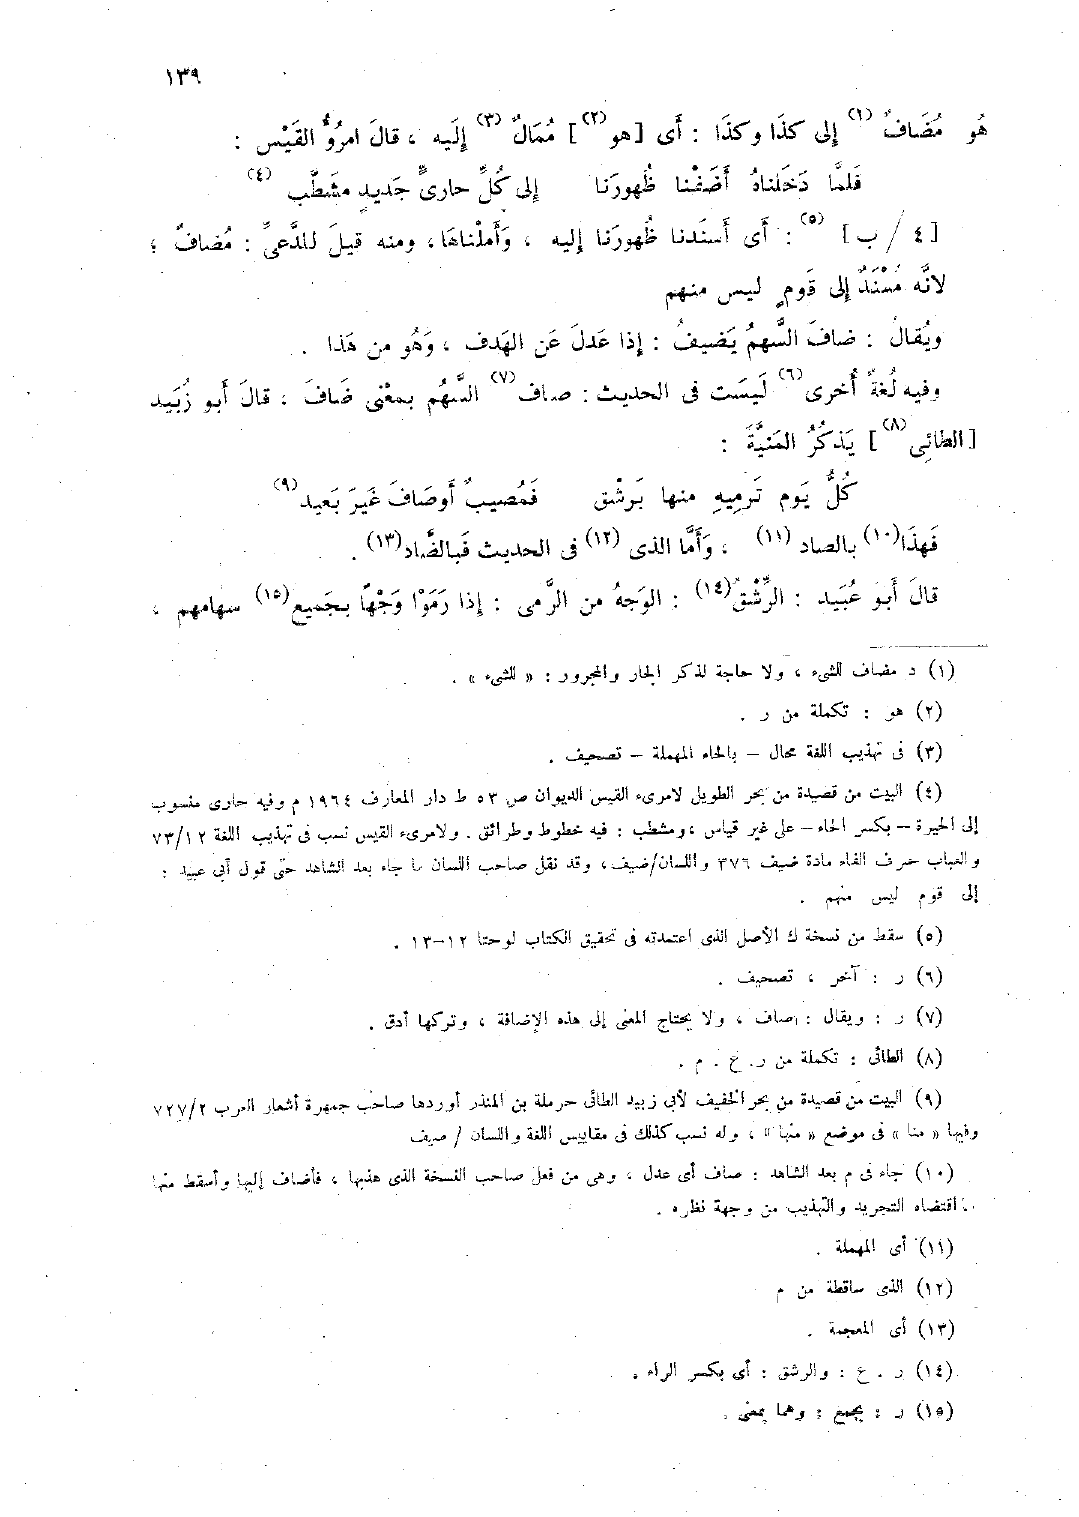 ١٣٩
هُو مُضَافٌ (١) إلى كذَا وكذَا : أَى [هو (٢)] مُمَالٌ (٣) إلَيه ، قالَ امرُؤُ القَيْس :
فَلمَّا دَخَلناهُ أَضَفْنا ظُهورَنا إلى كُلِّ حارىٍّ جَديدٍ مشَطَّب (٤)
[٤ / ب] (٥) : أَى أَسنَدنا ظُهورَنا إليه ، وَأَملْناهَا، ومنه قيلَ للدَّعىِّ : مُضافٌ ؛
لانَّه مُسْنَدٌ إلى قَومٍ ليس منهم
ويُقالُ : ضافَ السَّهمُ يَضيفُ : إذا عَدلَ عَن الهَدف ، وَهُو من هَذا .
وفيه لُغةٌ أُخرى (٦) لَيسَت فى الحديث : صاف (٧) السَّهُم بمعْنى ضَافَ ، قالَ أَبو زُبَيد
[الطائِى (٨)] يَذكُرُ المَنيَّةَ :
كُلُّ يَوم تَرميهِ منها بَرشْق فَمُصيبٌ أَوصَافَ غَيرَ بَعيد (٩)
فَهذَا (١٠) بالصاد (١١) ، وَأَمَّا الذى (١٢) فى الحديث فَبالضَّاد (١٣) .
قالَ أَبو عُبَيد : الرِّشْقُ (١٤) : الوَجهُ من الرَّمى : إذا رَمَوْا وَجْهًا بجَميع (١٥) سهامهم ،
(١) د مضاف للشىء ، ولا حاجة لذكر الجار والمجرور : « للشىء » .
(٢) هو : تكملة من ر .
(٣) فى تهذيب اللغة محال – بالحاء المهملة – تصحيف .
(٤) البيت من قصيدة من بحر الطويل لامرىء القيس الديوان ص ٥٣ ط دار المعارف ١٩٦٤ م وفيه حارى منسوب
إلى الحيرة – بكسر الحاء – على غير قياس ، ومشطب : فيه خطوط وطرائق . ولامرىء القيس نسب فى تهذيب اللغة ٧٣/١٢
والعباب حرف الفاء مادة ضيف ٣٧٦ واللسان/ضيف، وقد نقل صاحب اللسان ما جاء بعد الشاهد حتى قول أبى عبيد :
إلى قوم ليس منهم .
(٥) سقط من نسخة ك الأصل الذى اعتمدته فى تحقيق الكتاب لوحتا ١٢–١٣ .
(٦) ر : آخر ، تصحيف .
(٧) ر : ويقال : صاف ، ولا يحتاج المعنى إلى هذه الإضافة ، وتركها أدق .
(٨) الطائى : تكملة من ر. ع . م .
(٩) البيت من قصيدة من بحر الخفيف لأبى زبيد الطائى حرملة بن المنذر أوردها صاحب جمهرة أشعار العرب ٧٢٧/٢
وفيها « منا » فى موضع « منها » ، وله نسب كذلك فى مقاييس اللغة واللسان / صيف
(١٠) جاء فى م بعد الشاهد : صاف أى عدل ، وهى من فعل صاحب النسخة الذى هذبها ، فأضاف إليها وأسقط منها
ما اقتضاه التجريد والتهذيب من وجهة نظره .
(١١) أى المهملة .
(١٢) الذى ساقطة من م
(١٣) أى المعجمة .
(١٤) ر . ع : والرشق : أى بكسر الراء .
(١٥) ر : بجمع : وهما بمعنى .